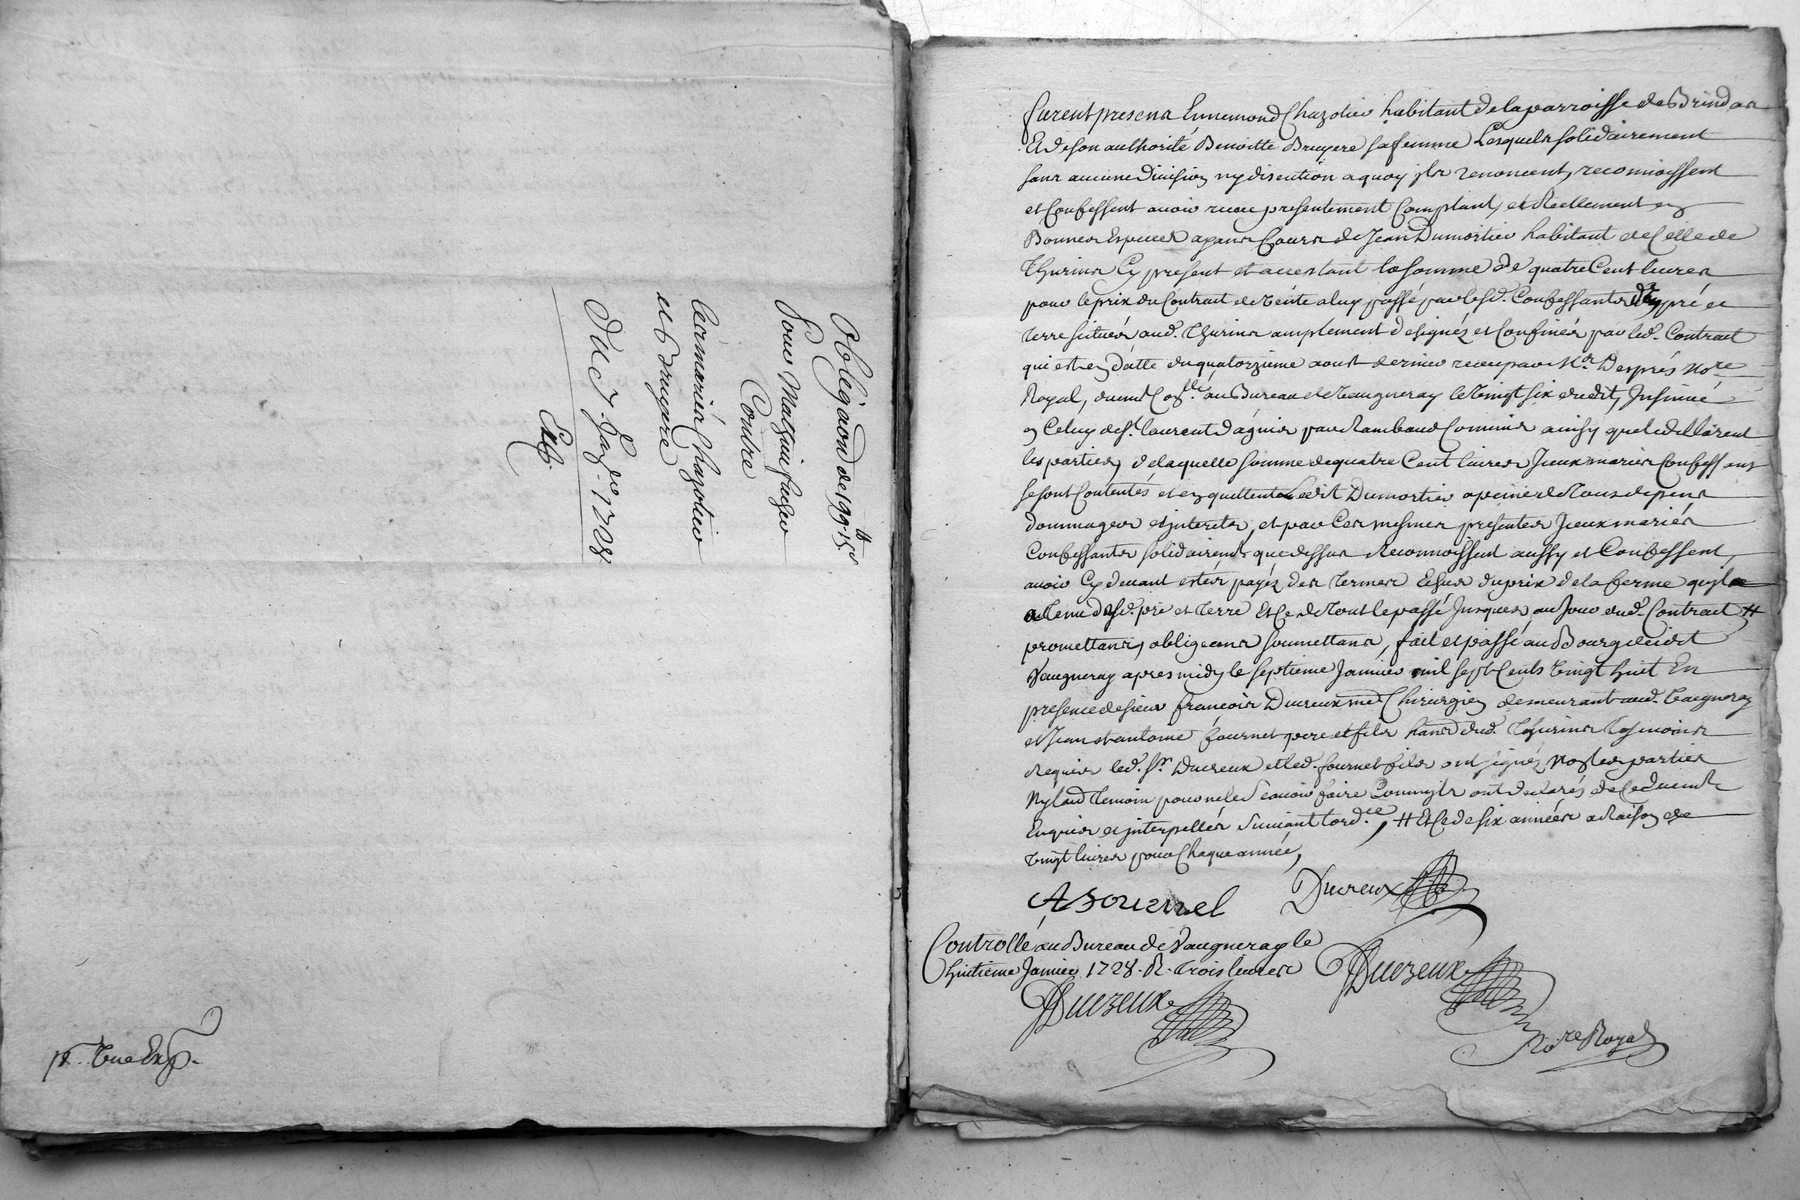 Obligaon de 99lt 15s
Pour Mathieu
Contre
les mariés Chazotier
et Bruyere
Du 7 Janvro 1728
Exp.
pr. Une Exp.
furent presens Ennemond Chazotier habitant de la parroisse de Brindas
Et de son authorité Benoitte Bruyere sa femme Lesquels solidairement
sans aucune division ny discution a quoy ils renoncent, reconnoissent
et Confessent avoir receu presentement Comptant, et Reellement en
Bonnes Especes ayans Cours de Jean Dumortier habitant de Celle de
Thurins Cy present et acceptant la somme de quatre Cent livres
pour le prix du Contract de Vente a luy passé par lesd. Confessants pré et
terre situés aud. Thurins amplement designés et Confinés par led. Contract
qui est en datte du quatorzieme aoust dernier receu par Mr. Després Nore
Royal, au Bureau de Vaugneray le Vingt six dudit, Insinué
a Celuy de St. laurent d'agnier par Rambaud Commis ainsy que le dellarent
les parties, de laquelle somme de quatre Cent livres Iceux mariés Confessans
se sont Contentés et en quittent ledit Dumortier a peine de Tous depens
dommages et interets, et par Ces mesmes presentes Iceux mariés
Confessants solidairemt. que dessus Reconnoissent aussy et Confessent,
avoir Cy devant estés payés des termes Echus du prix de la ferme qu'il
a Tenu desd. pré et terre Et Ce de Tout le passé Jusques au Jour dud. Contract #
promettans, obligeans soumettans, fait et passé au Bourg dudit
Vaugneray apres midy le septieme Janvier mil sept Cents Vingt huit En
presence de sieur françois Ducreux me Chirurgien demeurant aud. Vaugneray
et Jean et antoine fournel pere et fils hans dud. Thurins Tesmoins
Requis led. sr. Ducreux et led. fournel fils ont signés Non les parties
Ny laud Temoin pour ne le sçavoir faire Comm'ils ont declarés de Ce duemt
Enquis et interpellés Suivant l'ordce, # Et Ce de six années a Raison de
Vingt livres pour Chaque année,
A fournel
Ducreux
Controllé au Bureau de Vaugneray le
huitieme Janvier 1728. R. trois livres
Ducreux
Ducreux
Nore Royal